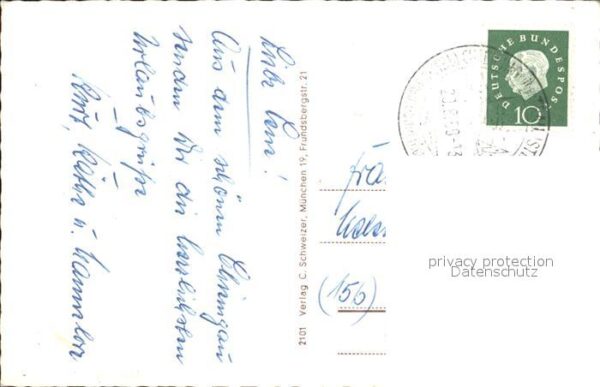 Liebe Leni!
Aus dem schönen Chiemgau
senden Dir die herzlichsten
Urlaubsgrüße
Käthe u. Hannelore
2101 Verlag C. Schweizer, München 19, Frundsbergstr. 21
DEUTSCHE BUNDESPOST
10
(15b)
privacy protection
Datenschutz